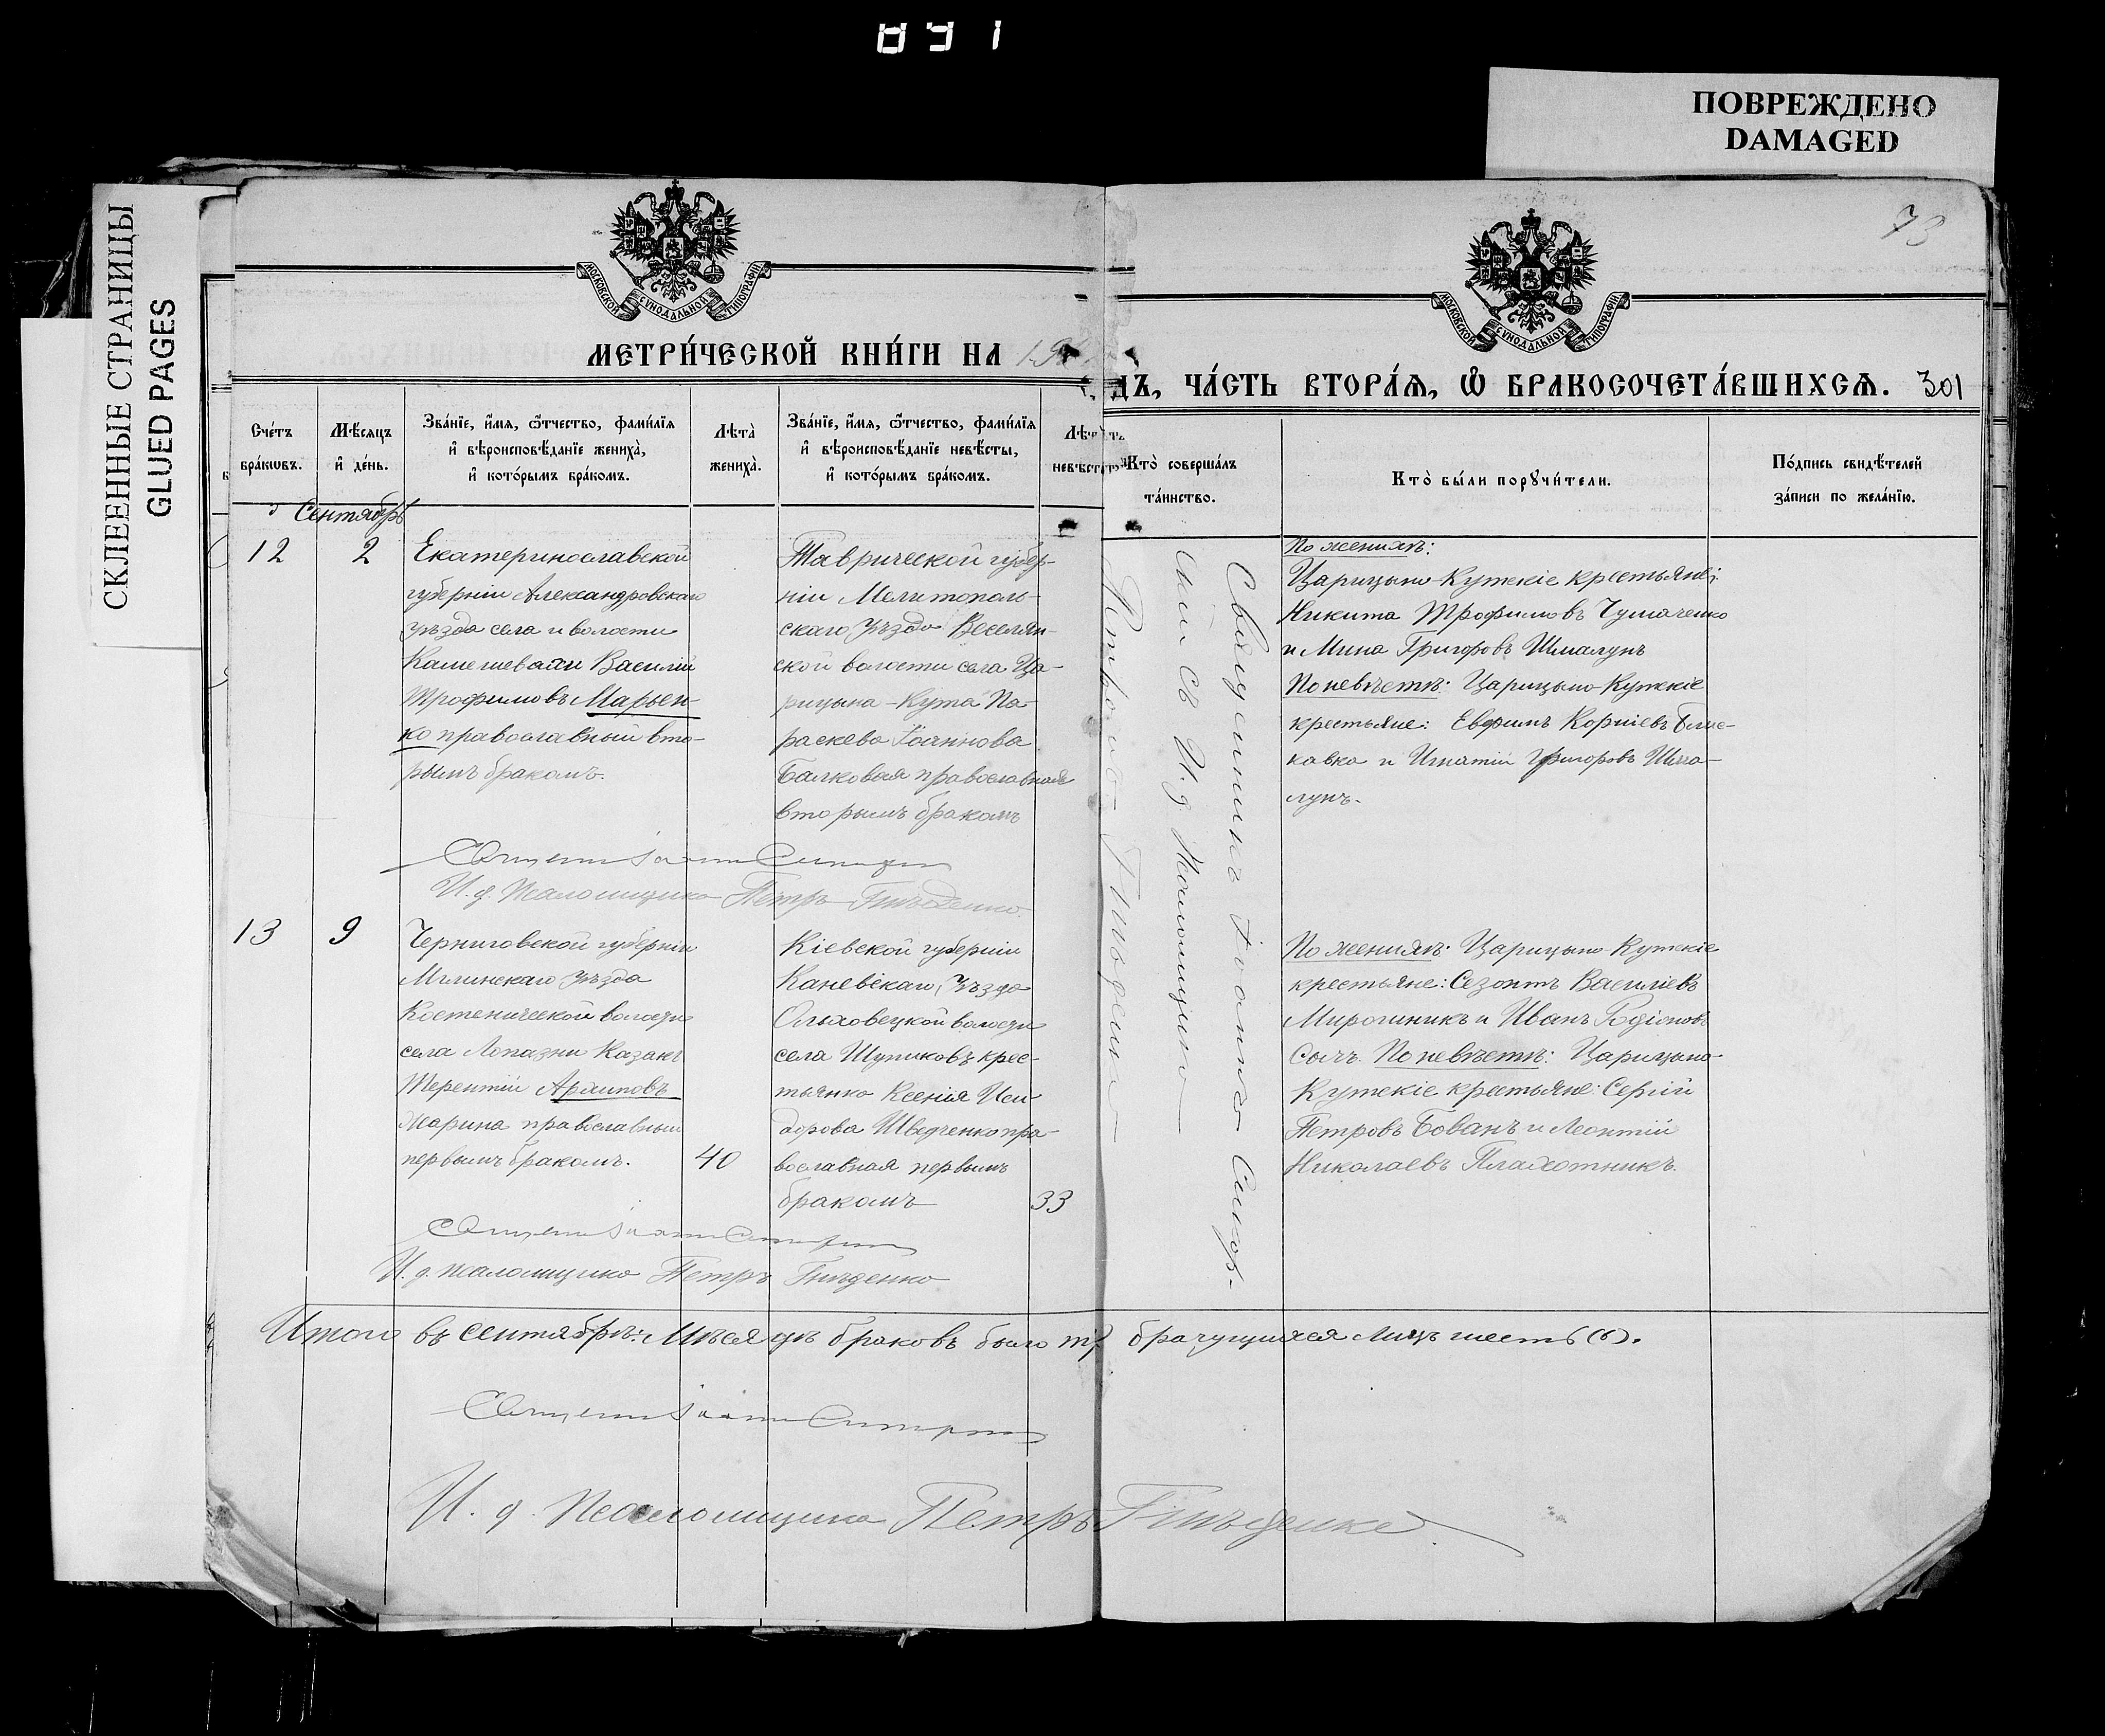 ПОВРЕЖДЕНО
DAMAGED
СКЛЕЕННЫЕ СТРАНИЦЫ
GLUED PAGES
73
МОСКОВСКОЙ СѴНОДАЛЬНОЙ ТИПОГРАФІИ
МЕТРИ́ЧЕСКОЙ КНИ́ГИ НА 19
МОСКОВСКОЙ СѴНОДАЛЬНОЙ ТИПОГРАФІИ
ДЪ, ЧА́СТЬ ВТОРА́Ѧ, Ѽ БРАКОСОЧЕТА́ВШИХСѦ. 301
Сче́тъ
бра́кѡвъ.
Мѣ́сяцъ
и҆ де́нь.
Зва́нїе, и҆́мѧ, ѻ҆́тчество, фами́лїѧ
и҆ вѣроисповѣ́данїе жениха̀,
и҆ кото́рымъ бра́комъ.
Лѣ́та
жениха̀.
Зва́нїе, и҆́мѧ, ѻ҆́тчество, фами́лїѧ
и҆ вѣроисповѣ́данїе невѣ́сты,
и҆ кото́рымъ бра́комъ.
Лѣ́
невѣст
Кто̀ соверша́лъ
та́инство.
Кто̀ бы́ли порꙋчи́тели.
По́дпись свидѣ́телей
за́писи по жела́нїю.
Сентябрь
12
2
Екатеринославской
губерніи Александровскаго
уѣзда села и волости
Камышевахи Василій
Трофимовъ Марьен-
ко православный вто-
рымъ бракомъ.
Таврической губер-
ніи Мелитополь-
скаго уѣзда Веселян-
ской волости села Ца-
рицына-Кута Па-
раскева Іоаннова
Балковая православная
вторымъ бракомъ
По женихѣ:
Царицыно-Кутскіе крестьяне:
Никита Трофимовъ Чумаченко
и Мина Григоровъ Шмалунъ
По невѣстѣ: Царицыно-Кутскіе
крестьяне: Евфимъ Корніевъ Блис-
кавка и Игнатій Григоровъ Шма-
лунъ.
Священникъ Іоаннъ
И. д. Псаломщика Петръ Гнѣденко.
Священникъ Іоаннъ
И. д. Псаломщика
Гнѣденко
13
9
Черниговской губерніи
Мглинскаго уѣзда
Костеничской волости
села Лопазни Казакъ
Терентій Архиповъ
Марина православный
первымъ бракомъ.
40
Кіевской губерніи
Каневскаго уѣзда
Ольховецкой волости
села Шупиковъ крес-
тьянка Ксенія Иси-
дорова Шведченко пра-
вославная первымъ
бракомъ
33
По женихѣ: Царицыно-Кутскіе
крестьяне: Созонтъ Васильевъ
Мирошникъ и Иванъ Родіоновъ
Сычъ. По невѣстѣ: Царицыно-
Кутскіе крестьяне: Сергій
Петровъ Бованъ и Леонтій
Николаевъ Плахотникъ.
Священникъ Іоаннъ
И. д. псаломщика Петръ Гнѣденко
Итого въ сентябрѣ мѣсяцѣ браковъ было тр брачущихся лицъ шесть (6).
Священникъ Іоаннъ
И. д. Псаломщика Петръ Гнѣденко